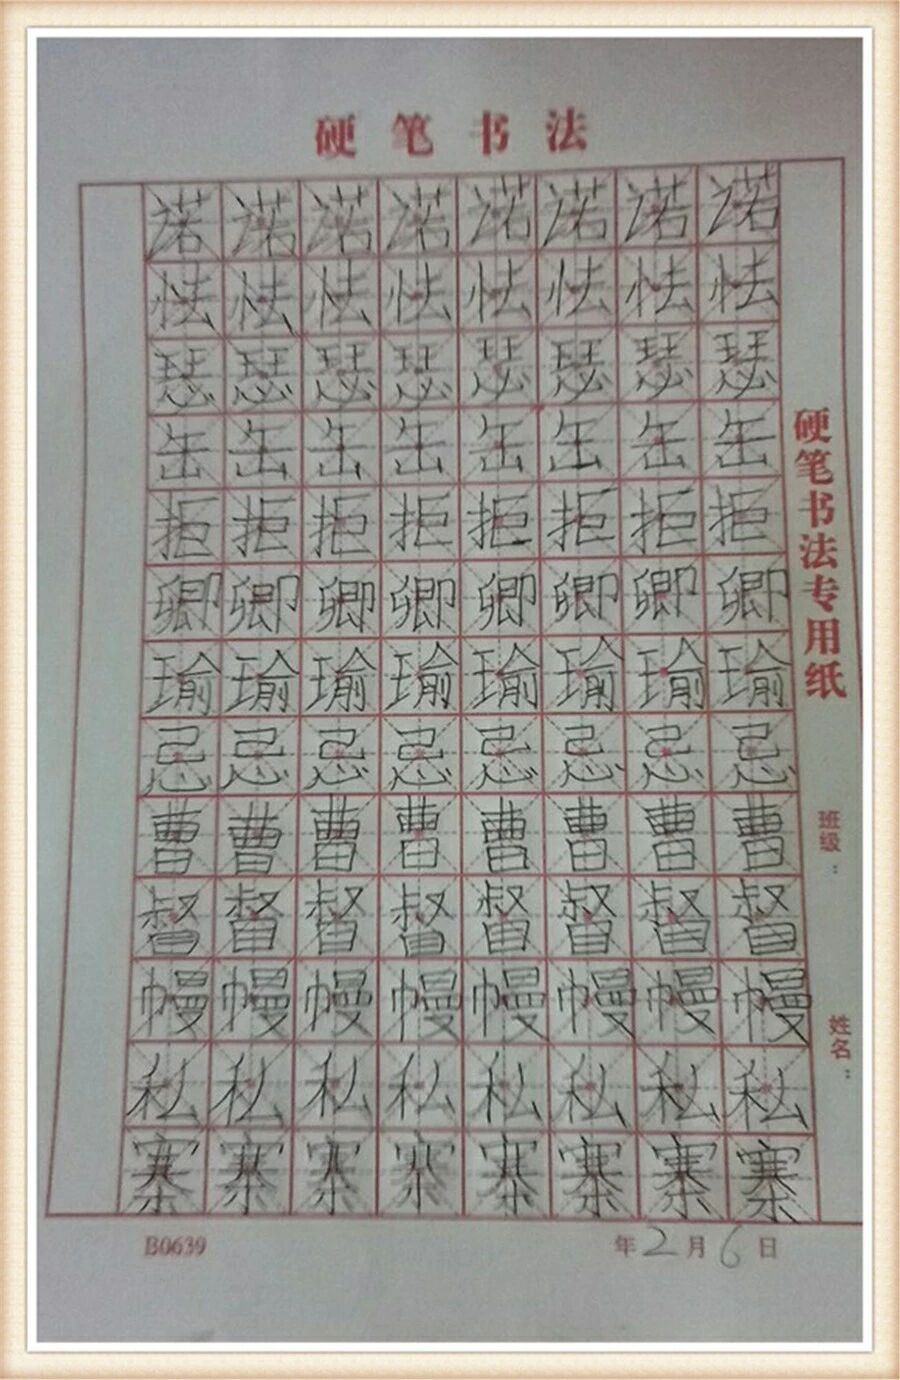 硬笔书法
诺诺诺诺诺诺诺诺
怯怯怯怯怯怯怯怯
瑟瑟瑟瑟瑟瑟瑟瑟
缶缶缶缶缶缶缶缶
拒拒拒拒拒拒拒拒
卿卿卿卿卿卿卿卿
瑜瑜瑜瑜瑜瑜瑜瑜
忌忌忌忌忌忌忌忌
曹曹曹曹曹曹曹曹
督督督督督督督督
幔幔幔幔幔幔幔幔
私私私私私私私私
寨寨寨寨寨寨寨寨
硬笔书法专用纸
班级：
姓名：
B0639
年2月6日